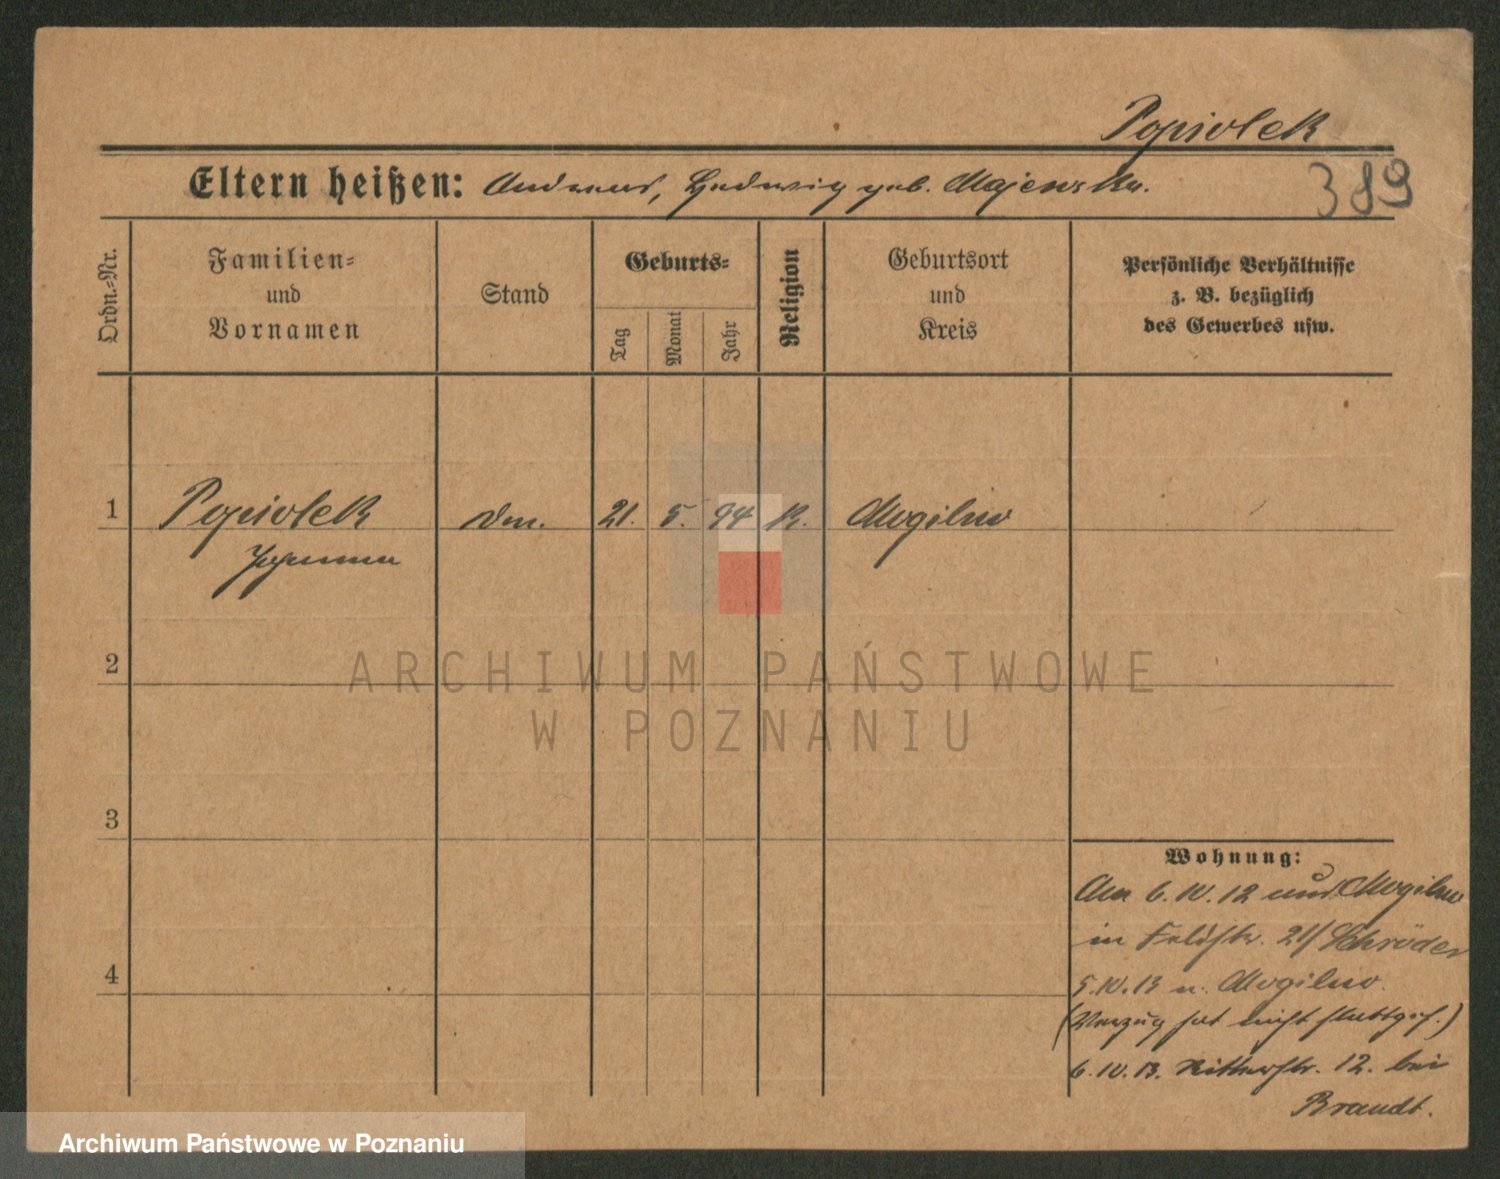 Popiolek
Eltern heißen: Andreas, Hedwig geb. Majewska.
389
Ordn.-Nr.
Familien-
und
Vornamen
Stand
Geburts-
Tag
Monat
Jahr
Religion
Geburtsort
und
Kreis
Persönliche Verhältnisse
z. B. bezüglich
des Gewerbes usw.
1 Popiolek 21. 5. 94 K. Mogilno
2
3
4
ARCHIWUM PAŃSTWOWE
W POZNANIU
Wohnung:
6.10.12 Mogilno
in Feldstr. 21/ Schröder
5.10.13 n. Mogilno.
(Verzug hat nicht stattgef.)
6.10.13. Ritterstr. 12. bei
Brandt.
Archiwum Państwowe w Poznaniu